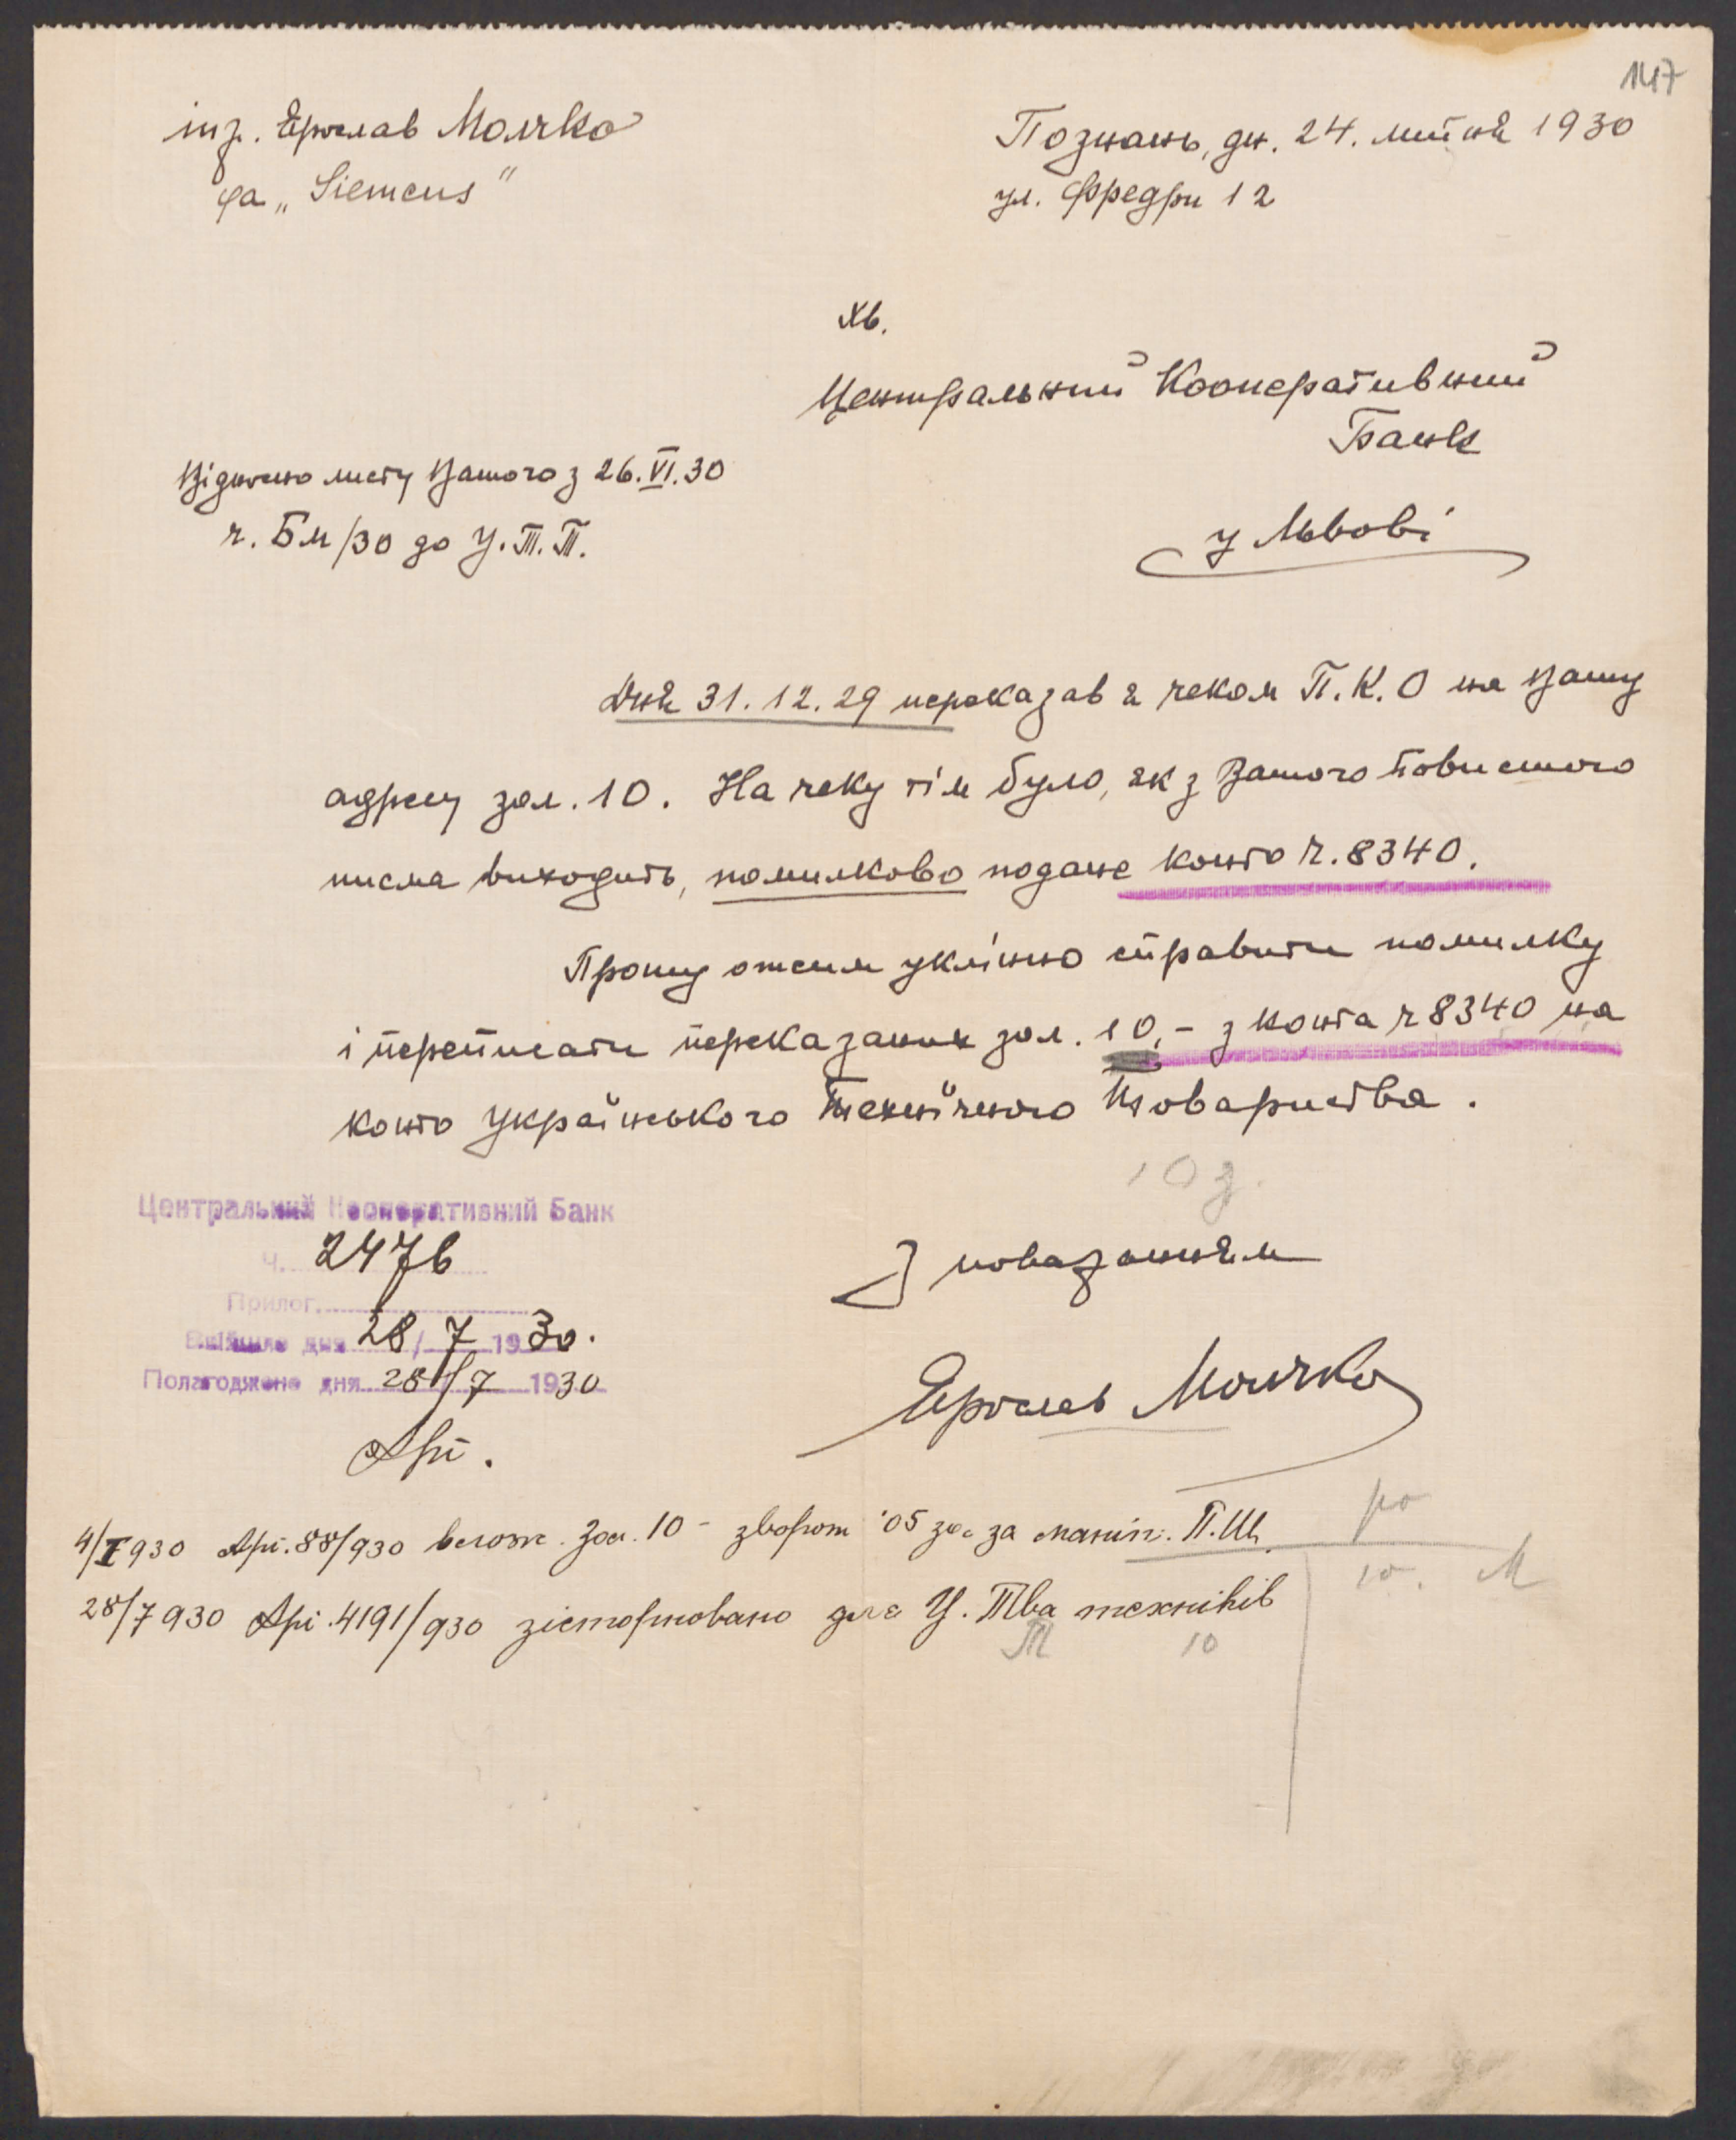 147
інж. Ярослав Молчко
фа „Siemens"
Познань, дн. 24. липня 1930
ул. Фредри 12
Хв.
Центральний Кооперативний
Банк
у Львові
Відносно листу Вашого з 26.VI.30
ч. Бм/30 до У.Т.Т.
Дня 31.12.29 переказав я чеком П.К.О на Вашу
адресу зол. 10. На чеку тім було, як з Вашого повисшого
письма виходить, помилково подане конто ч. 8340.
Прошу отсим уклінно справити помилку
і переписати переказаних зол. 10,- з конта ч 8340 на
конто Українського Технічного Товариства.
10 з.
З поважанням
Ярослав Молчко
Центральний Кооперативний Банк
Ч. 2476
Прилог.
Вийшло дня 28/7 1930.
Полагоджено дня 28/7 1930
4/I 930 88/930 влож. Зол. 10 - зворот '05 зол за маніп. П.Щ.
28/7 930 4191/930 зісторновано для У. Тва техніків
10. М
Т 10